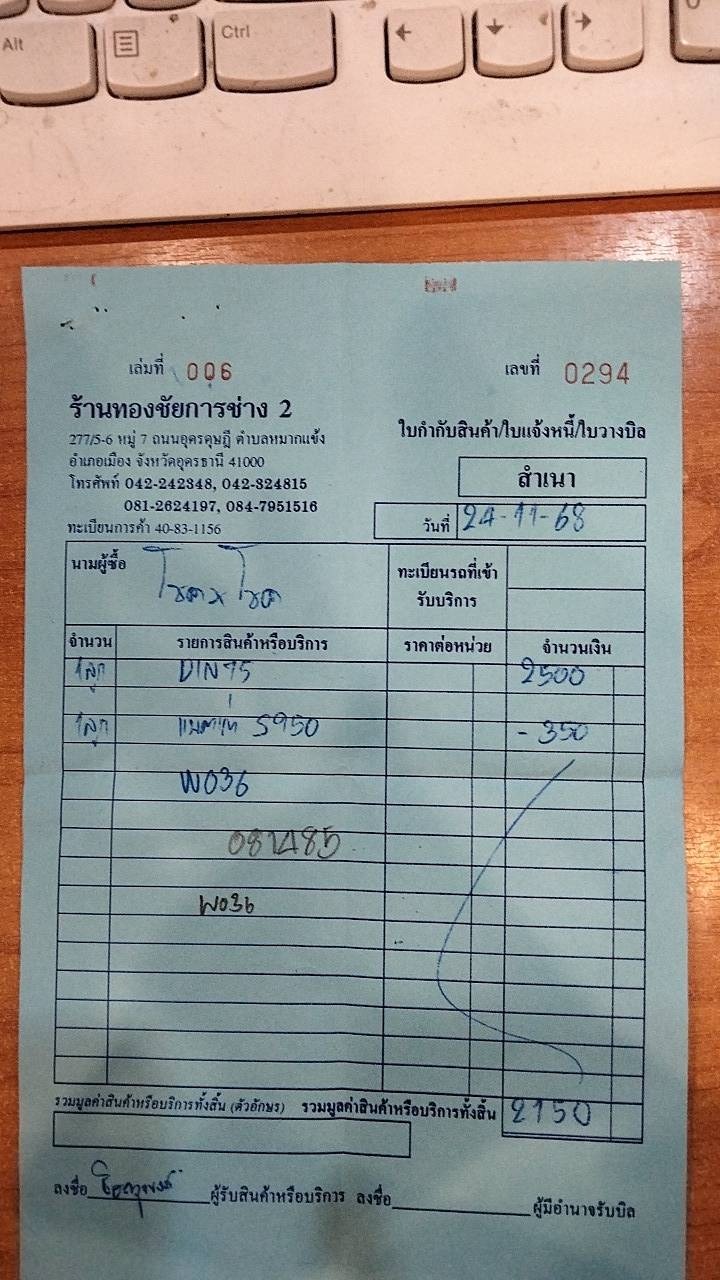 Alt
Ctrl
เล่มที่ 006
เลขที่ 0294
ร้านทองชัยการช่าง 2
277/5-6 หมู่ 7 ถนนอุดรดุษฎี ตำบลหมากแข้ง
อำเภอเมือง จังหวัดอุดรธานี 41000
โทรศัพท์ 042-242348, 042-324815
081-2624197, 084-7951516
ทะเบียนการค้า 40-83-1156
ใบกำกับสินค้า/ใบแจ้งหนี้/ใบวางบิล
สำเนา
วันที่ 24-11-68
นามผู้ซื้อ โชค x โชค
ทะเบียนรถที่เข้า
รับบริการ
จำนวน รายการสินค้าหรือบริการ ราคาต่อหน่วย จำนวนเงิน
1ลูก DIN75 2500
1ลูก S950 - 350
W036
081485
W036
รวมมูลค่าสินค้าหรือบริการทั้งสิ้น (ตัวอักษร) รวมมูลค่าสินค้าหรือบริการทั้งสิ้น 2150
ลงชื่อ ผู้รับสินค้าหรือบริการ ลงชื่อ ผู้มีอำนาจรับบิล